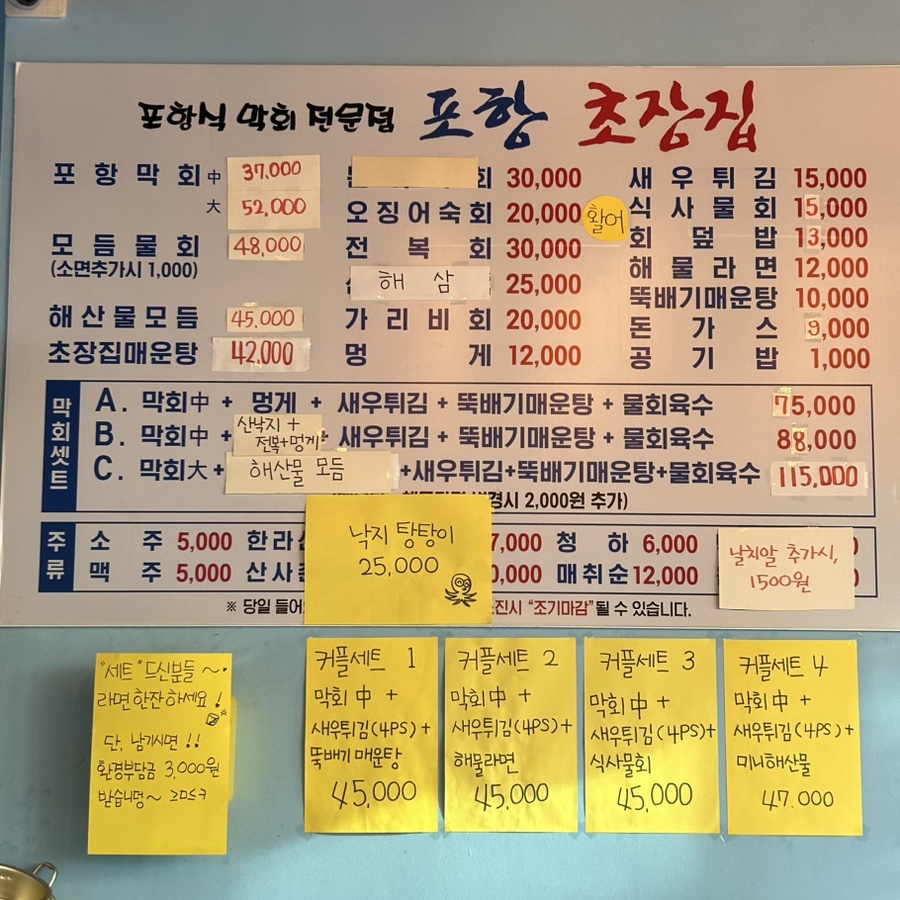 포항식 막회 전문점 포항 초장집
포항막회 中 37,000
大 52,000
모듬물회 48,000
(소면추가시 1,000)
해산물모듬 45,000
초장집매운탕 42,000
회 30,000
오징어숙회 20,000
전복회 30,000
해삼 25,000
가리비회 20,000
멍게 12,000
활어
새우튀김 15,000
식사물회 15,000
회덮밥 13,000
해물라면 12,000
뚝배기매운탕 10,000
돈가스 9,000
공기밥 1,000
막회세트
A. 막회中 + 멍게 + 새우튀김 + 뚝배기매운탕 + 물회육수 75,000
B. 막회中 + 산낙지 + 전복+멍게 + 새우튀김 + 뚝배기매운탕 + 물회육수 88,000
C. 막회大 + 해산물 모듬 +새우튀김+뚝배기매운탕+물회육수 115,000
경시 2,000원 추가)
주류
소주 5,000 한라 7,000 청하 6,000
맥주 5,000 산사 0,000 매취순 12,000
낙지 탕탕이
25,000
날치알 추가시,
1500원
※ 당일 들어 소진시 "조기마감"될 수 있습니다.
"세트" 드신분들~
라면 한잔 하세요!
단, 남기시면!!
환경부담금 3,000원
받습니덩~
커플세트 1
막회 中 +
새우튀김(4PS)+
뚝배기 매운탕
45,000
커플세트 2
막회 中 +
새우튀김(4PS)+
해물라면
45,000
커플세트 3
막회 中 +
새우튀김(4PS)+
식사물회
45,000
커플세트 4
막회 中 +
새우튀김(4PS)+
미니해산물
47.000